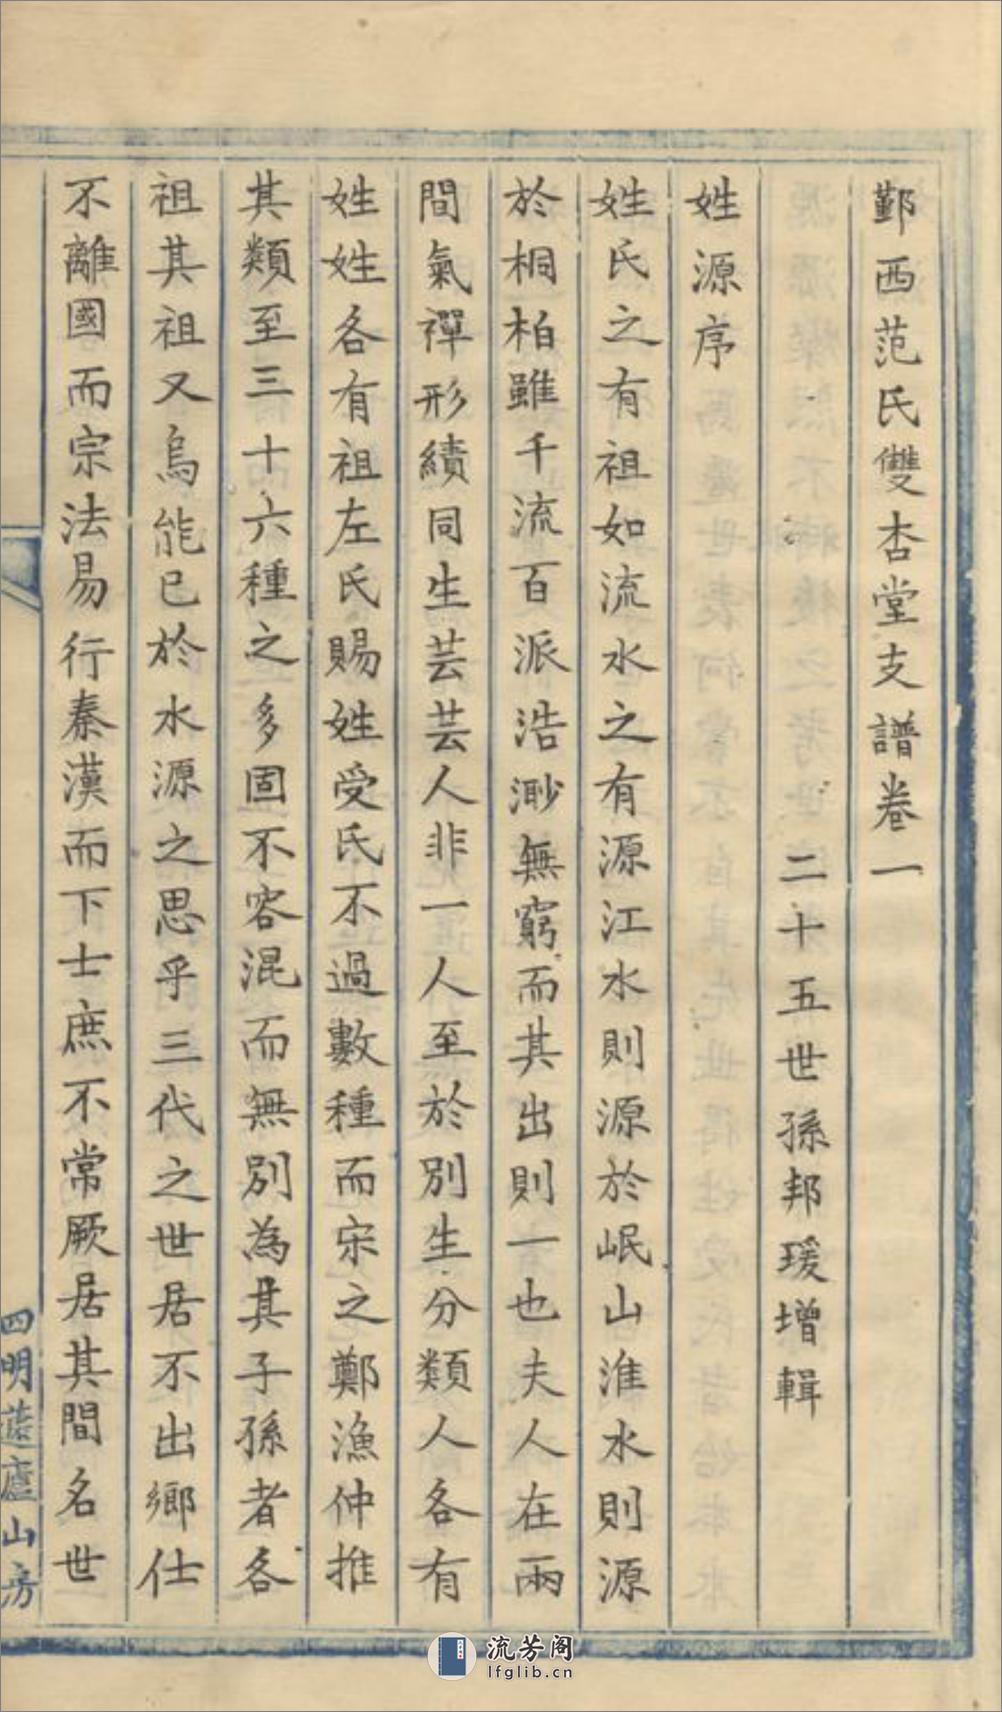 鄞西范氏雙杏堂支譜卷一
二十五世孫邦瑗增輯
姓源序
姓氏之有祖如流水之有源江水則源於岷山淮水則源
於桐柏雖千流百派浩渺無窮而其出則一也夫人在兩
間氣禪形續同生芸芸人非一人至於別生分類人各有
姓姓各有祖左氏賜姓受氏不過數種而宋之鄭漁仲推
其類至三十六種之多固不容混而無別為其子孫者各
祖其祖又烏能已於水源之思乎三代之世居不出鄉仕
不離國而宗法易行秦漢而下士庶不常厥居其間名世
四明蘧廬山房
流芳阁
lfglib.cn